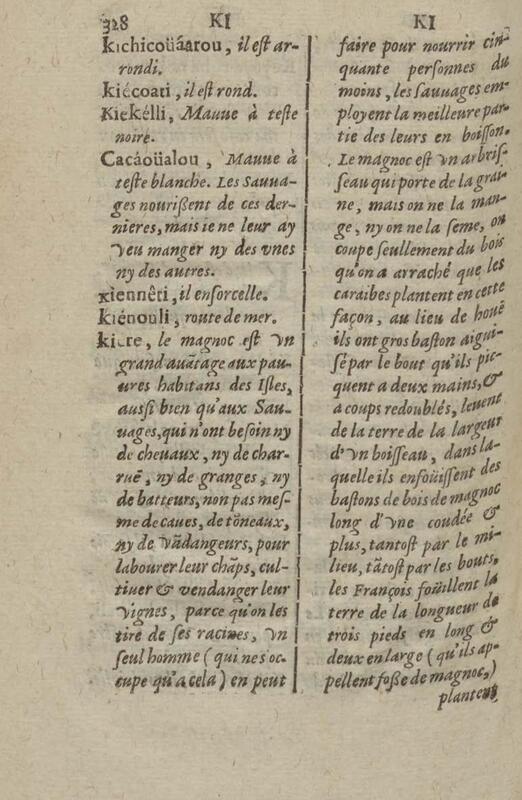 328 KI KI
kichicoüáarou, il eſt ar-
rondi.
kiécoati, il eſt rond.
Kiekélli, Mauue à teſte
noire.
Cacáoüalou, Mauue à
teſte blanche. Les Sauua-
ges nourißent de ces der-
nieres, mais ie ne leur ay
veu manger ny des vnes
ny des autres.
xiennêti, il enſorcelle.
Kiénouli, route de mer.
kiere, le magnoc eſt vn
grand auãtage aux pau-
ures habitans des Iſles,
auſſi bien qu'aux Sau-
uages, qui n'ont beſoin ny
de cheuaux, ny de char-
ruë, ny de granges, ny
de batteurs, non pas meſ-
me de caues, de tõneaux,
ny de vãdangeurs, pour
labourer leur chãps, cul-
tiuer & vendanger leur
vignes, parce qu'on les
tire de ſes racines, vn
ſeul homme (qui ne s'oc-
cupe qu'a cela) en peut
faire pour nourrir cin-
quante perſonnes du
moins, les ſauuages em-
ployent la meilleure par-
tie des leurs en boiſſon.
Le magnoc eſt vn arbriſ-
ſeau qui porte de la grai-
ne, mais on ne la man-
ge, ny on ne la ſeme, on
coupe ſeullement du bois
qu'on a arraché que les
caraibes plantent en cette
façon, au lieu de houë
ils ont gros baſton aigui-
ſé par le bout qu'ils pic-
quent a deux mains, &
a coups redoublés, leuent
de la terre de la largeur
d'vn boiſſeau, dans la-
quelle ils enfoüiſſent des
baſtons de bois de magnoc
long d'vne coudée &
plus, tantoſt par le mi-
lieu, tãtoſt par les bouts,
les François foüillent la
terre de la longueur de
trois pieds en long &
deux en large (qu'ils ap-
pellent foße de magnoc,)
plantent